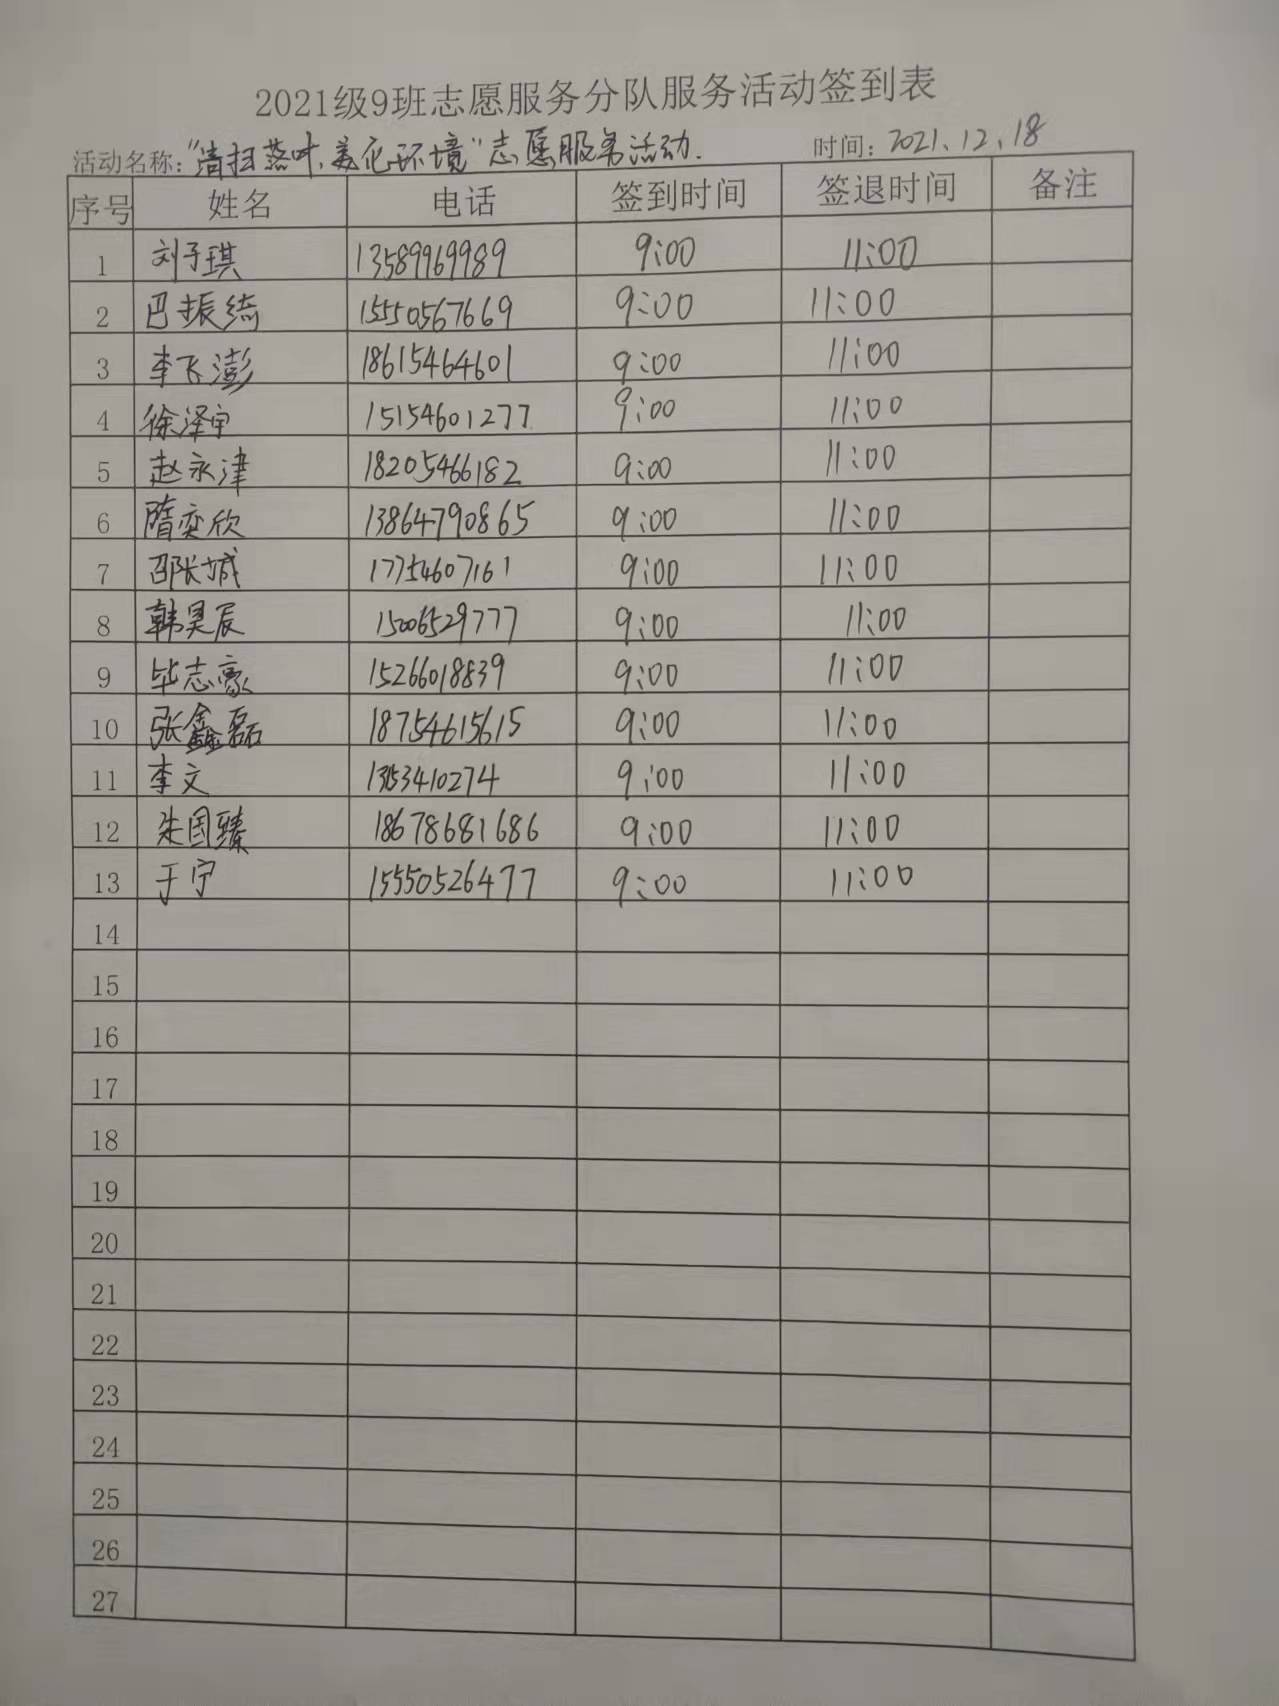 2021级9班志愿服务分队服务活动签到表
活动名称："清扫落叶，美化环境"志愿服务活动. 时间：2021.12.18
序号 姓名 电话 签到时间 签退时间 备注
1 刘子琪 13589969989 9:00 11:00
2 巴振绮 15550567669 9:00 11:00
3 李飞澎 18615464601 9:00 11:00
4 徐泽宇 15154601277 9:00 11:00
5 赵永津 18205466182 9:00 11:00
6 隋奕欣 13864790865 9:00 11:00
7 邵长城 17754607161 9:00 11:00
8 韩昊辰 15006529777 9:00 11:00
9 毕志豪 15266018839 9:00 11:00
10 张鑫磊 18754615615 9:00 11:00
11 李文 9:00 11:00
12 朱国臻 18678681686 9:00 11:00
13 于宁 15550526477 9:00 11:00
14
15
16
17
18
19
20
21
22
23
24
25
26
27